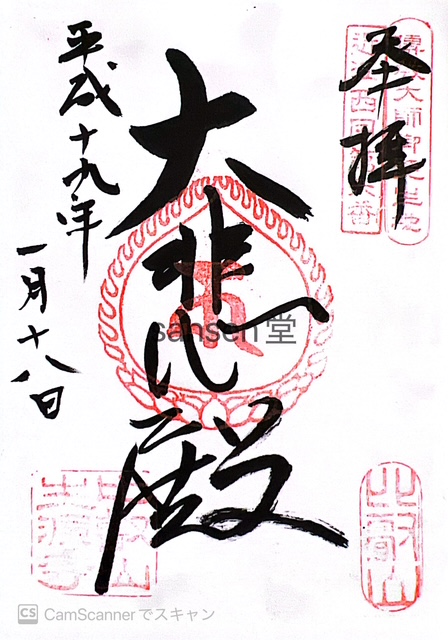 奉拝
傳教大師御誕生地
近江西国
大悲殿
平成十九年
一月十八日
比叡山
生源寺
sansen堂
CS CamScannerでスキャン